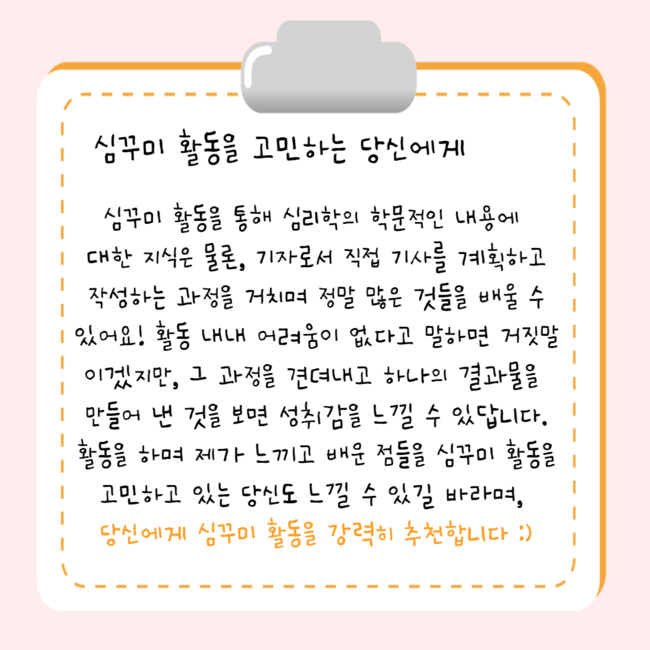 심꾸미 활동을 고민하는 당신에게
심꾸미 활동을 통해 심리학의 학문적인 내용에
대한 지식은 물론, 기자로서 직접 기사를 계획하고
작성하는 과정을 거치며 정말 많은 것들을 배울 수
있어요! 활동 내내 어려움이 없다고 말하면 거짓말
이겠지만, 그 과정을 견뎌내고 하나의 결과물을
만들어 낸 것을 보면 성취감을 느낄 수 있답니다.
활동을 하며 제가 느끼고 배운 점들을 심꾸미 활동을
고민하고 있는 당신도 느낄 수 있길 바라며,
당신에게 심꾸미 활동을 강력히 추천합니다 :)